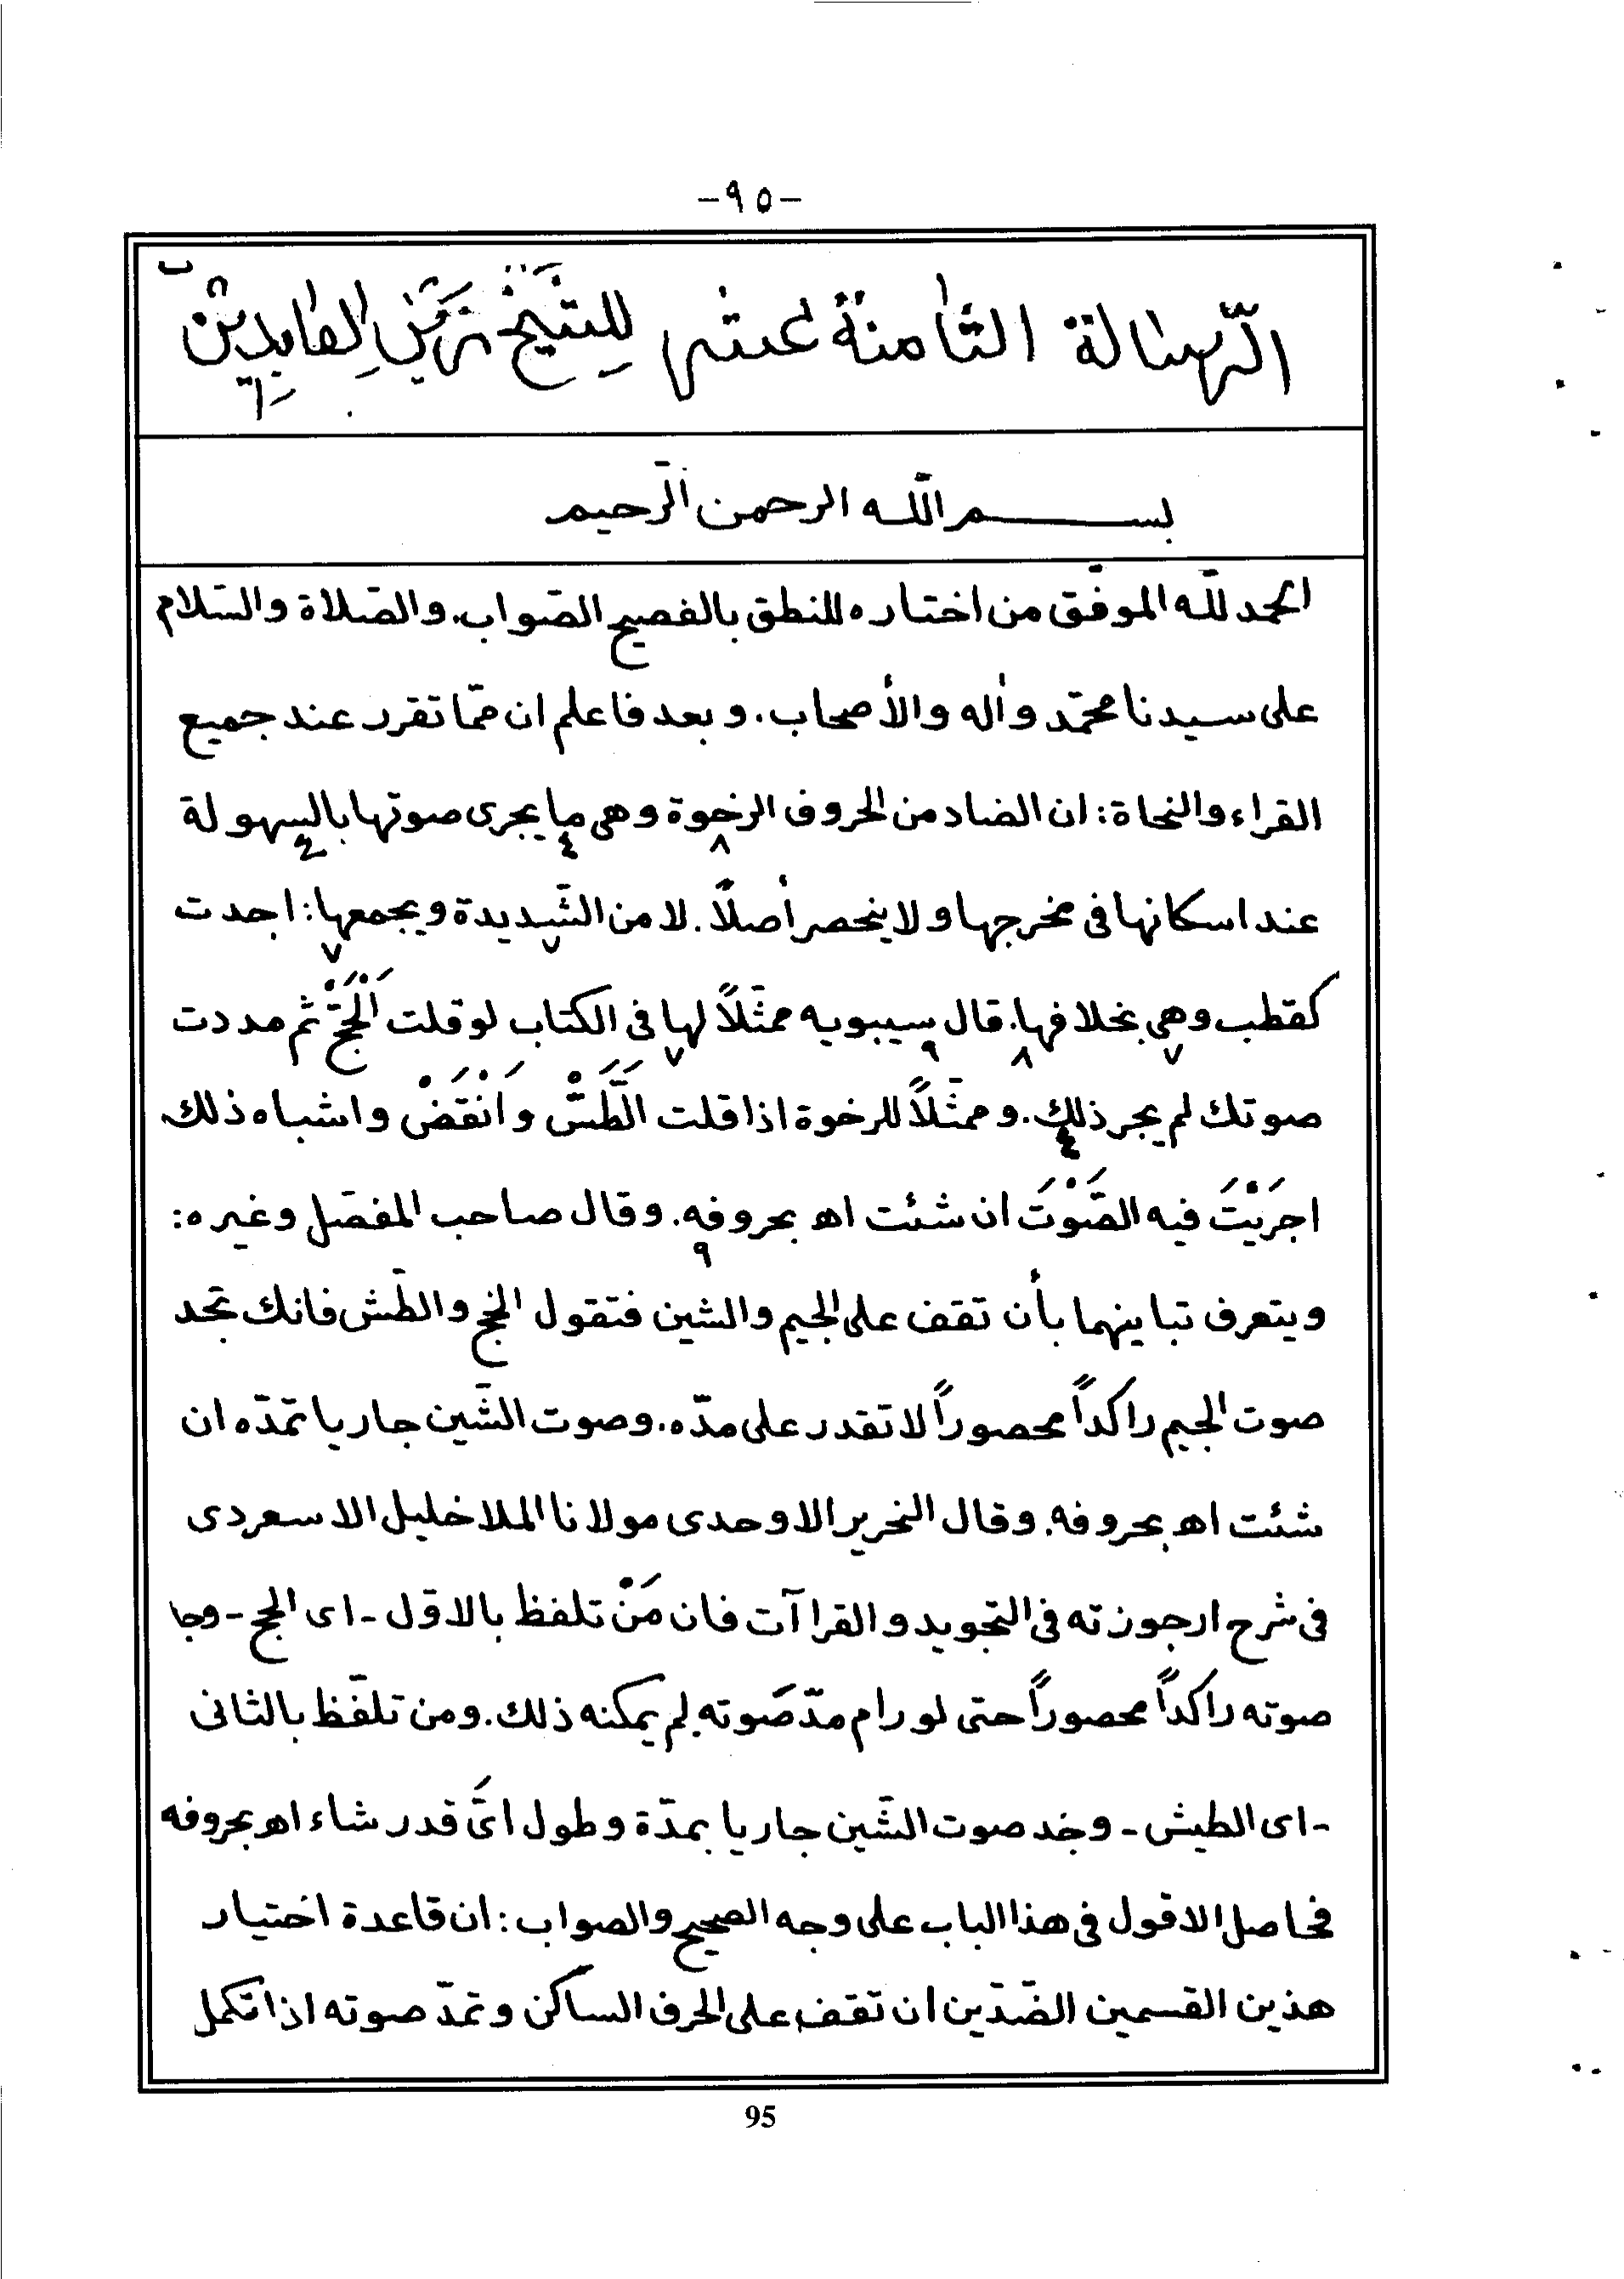 -٩٥-
الرّسالة الثامنة عشر للشيخ زين العابدين
بسم اللّه الرحمن الرّحيم
الحمد للّه الموفّق من اختاره للنطق بالفصيح الصّواب. والصّلاة والسّلام
على سيدنا محمّد وآله والأصحاب. وبعد فاعلم ان ممّا تقرر عند جميع
القراء والنحاة: ان الضاد من الحروف الرخوة وهى ما يجرى صوتها بالسهولة
عند اسكانها فى مخرجها ولا ينحصر أصلاً. لا من الشّديدة ويجمعها: اجدت
كقطب وهى بخلافها. قال سيبويه ممثّلاً لها فى الكتاب لو قلت اَلْحَجّْ ثم مددت
صوتك لم يجر ذلك. وممثّلاً للرخوة اذا قلت اَلطَّسّْ وَانْقَضْ واشباه ذلك
اجرَيْتَ فيه الصَّوْتَ ان شئت اهـ بحروفه. وقال صاحب المفصّل وغيره:
ويتعرف تباينهما بأن تقف على الجيم والشين فتقول الحج والطّش فانك تجد
صوت الجيم راكداً محصوراً لا تقدر على مدّه. وصوت الشّين جاريا تمدّه ان
شئت اهـ بحروفه. وقال النحرير الاوحدى مولانا الملا خليل الاسعردى
فى شرح ارجوزته فى التجويد والقراآت فان مَنْ تلفظ بالاوّل - اى الحج - وجد
صوته راكداً محصوراً حتى لو رام مدّ صَوته لم يمكنه ذلك. ومن تلفّظ بالثانى
- اى الطيش - وجد صوت الشّين جاريا بمدّة وطول اىَّ قدر شاء اهـ بحروفه
فحاصل الاقول فى هذا الباب على وجه الصحيح والصواب: ان قاعدة اختيار
هذين القسمين الضّدّين ان تقف على الحرف الساكن وتمدّ صوته اذا تكمل
95